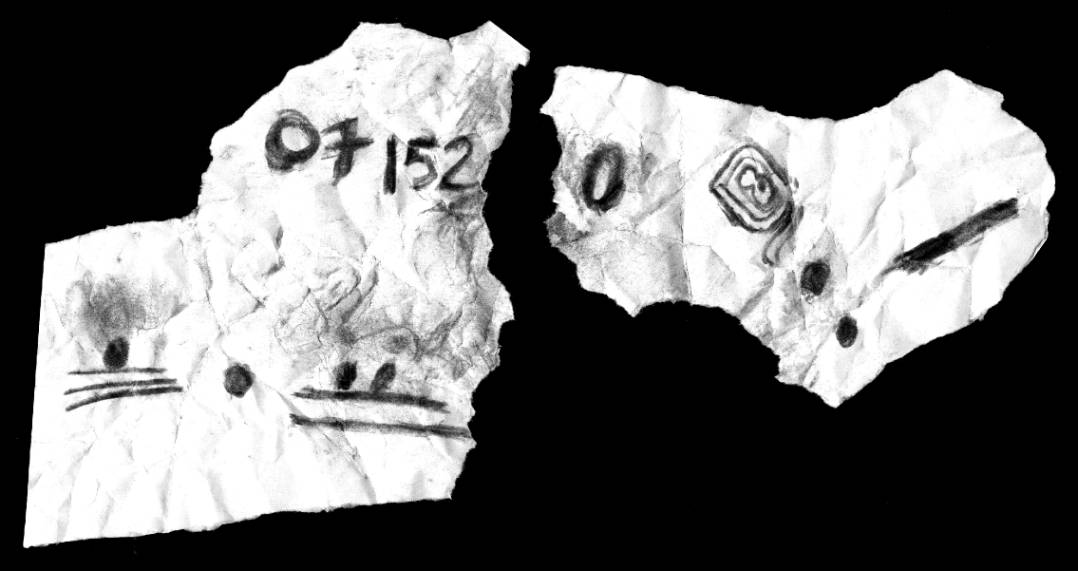 07 152 0